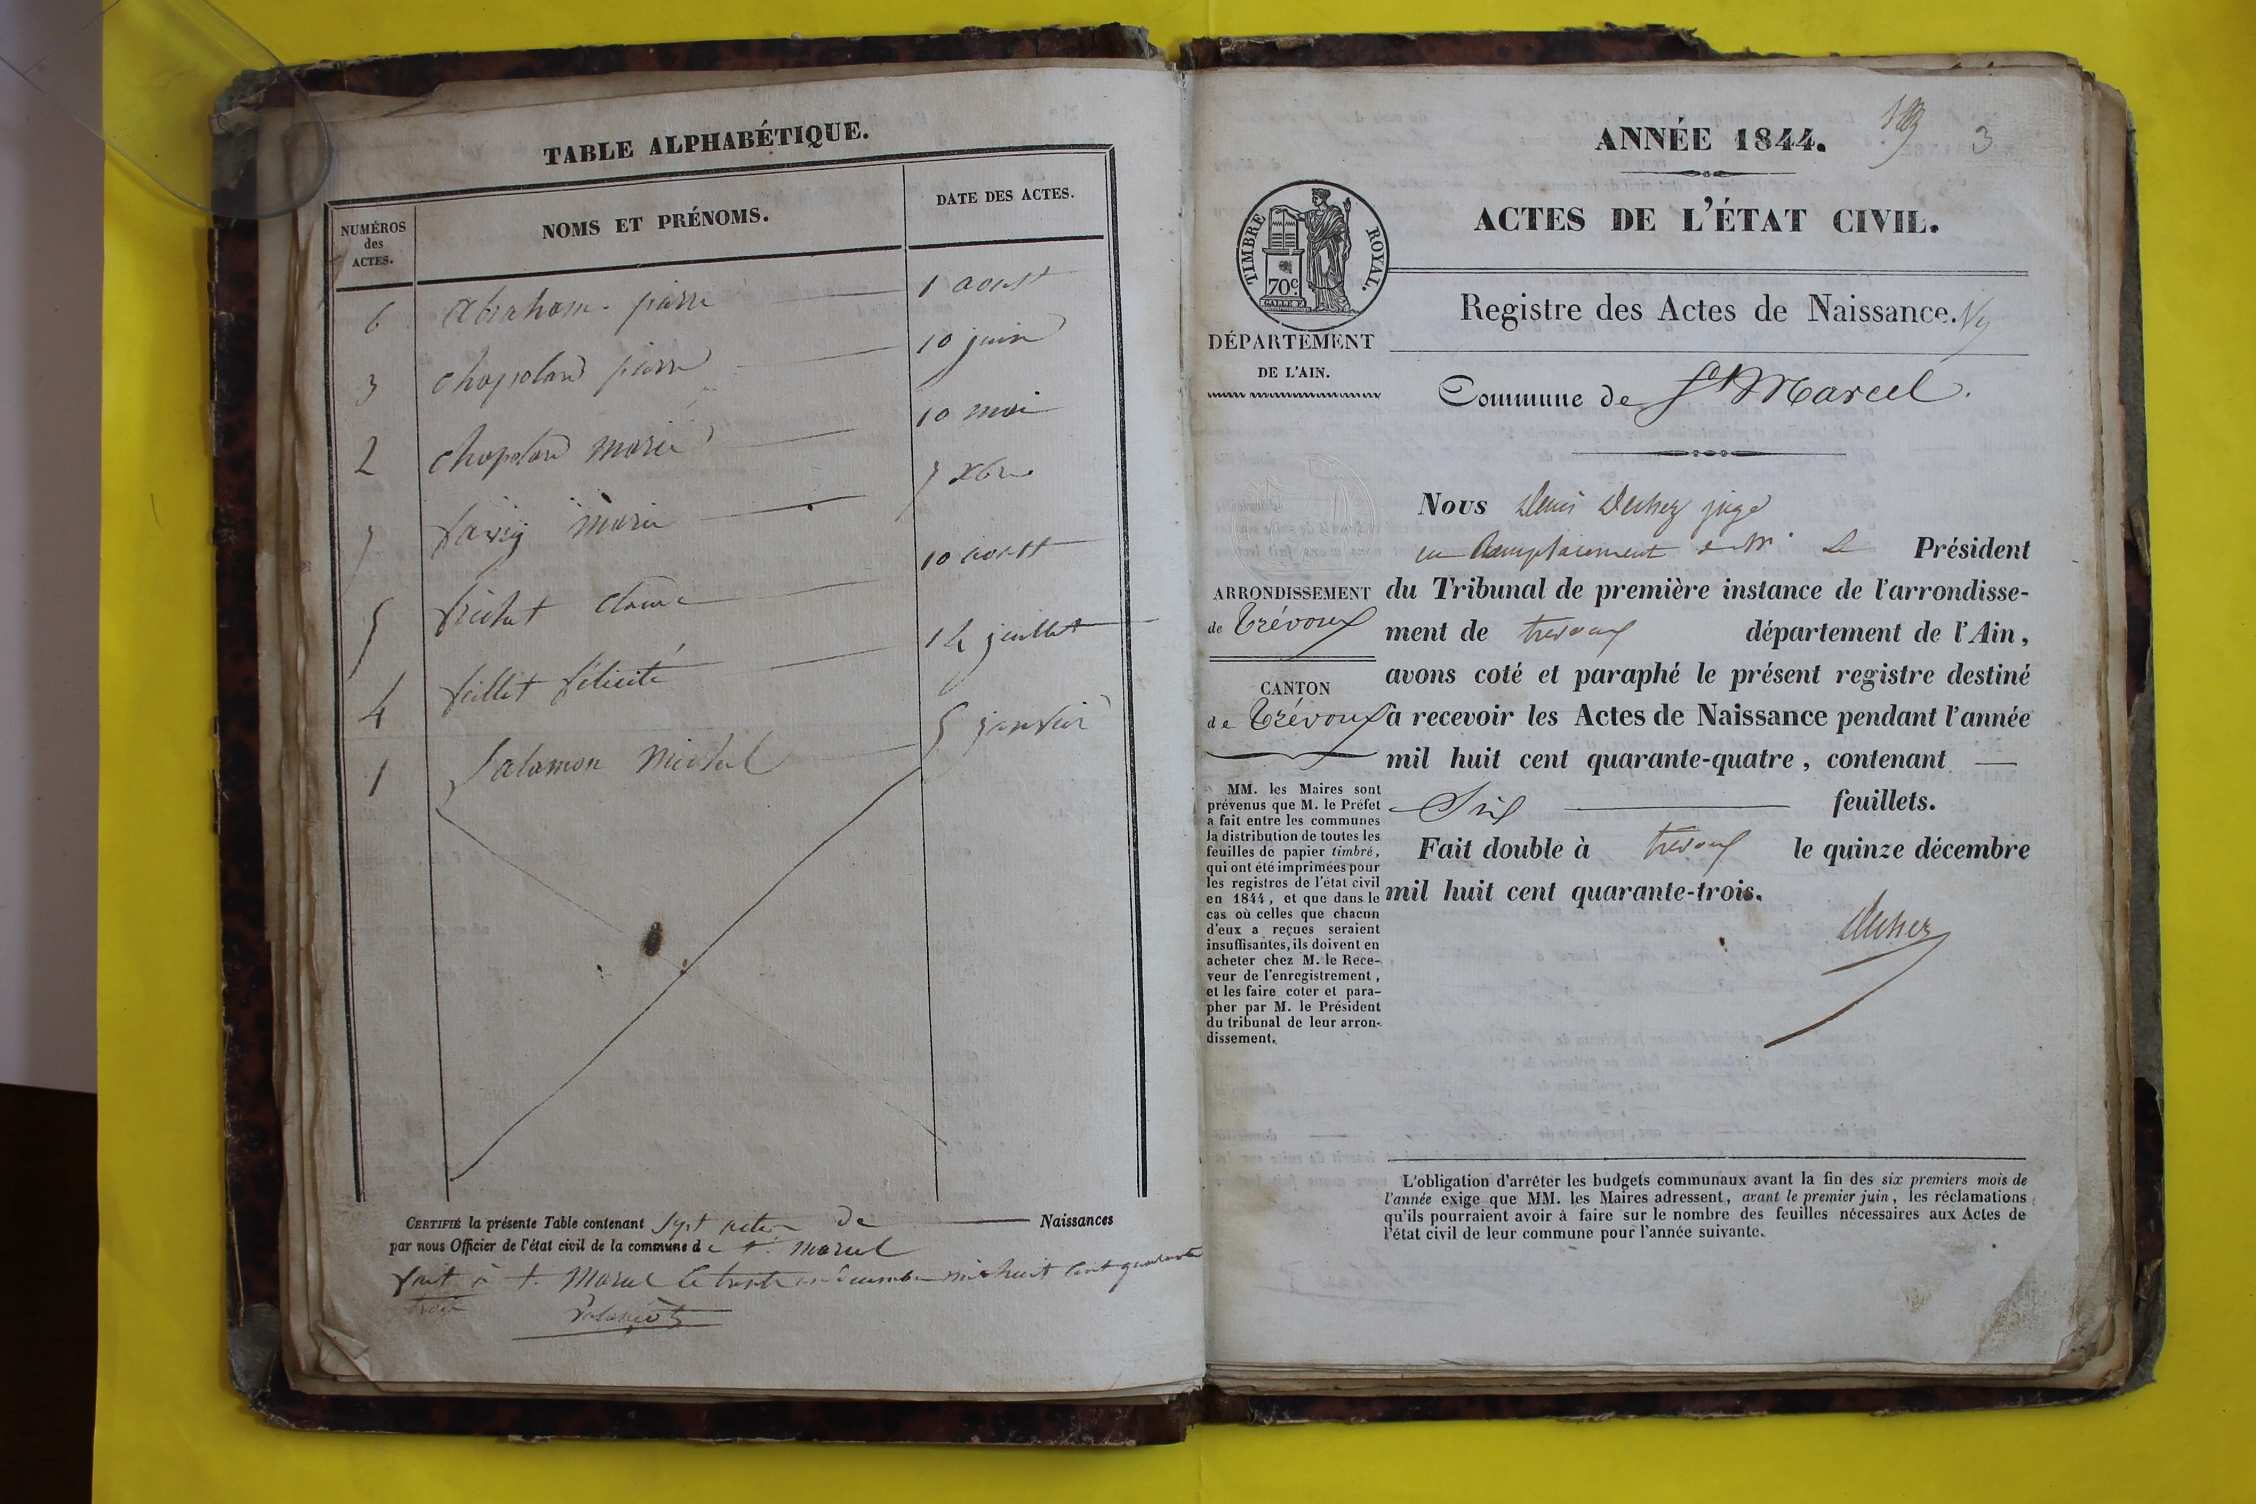 TABLE ALPHABÉTIQUE.
NUMÉROS des ACTES. NOMS ET PRÉNOMS. DATE DES ACTES.
6 Abraham pierre 1 aoust
3 Chapolard pierre 10 juin
2 Chapolard marie 10 mai
7 marie 7 Xbre
5 Claude 10 aoust
4 félicité 14 juillet
1 Salomon Michel 5 janvier
CERTIFIÉ la présente Table contenant Sept actes de Naissances
par nous Officier de l'état civil de la commune de St. Marcel
fait à St. Marcel le trente un décembre mil huit cent quarante
trois
ANNÉE 1844. 3
ACTES DE L'ÉTAT CIVIL.
TIMBRE ROYAL.
70c.
Registre des Actes de Naissance.
DÉPARTEMENT
DE L'AIN.
Commune de St Marcel.
ARRONDISSEMENT
de Trévoux
CANTON
de Trévoux
MM. les Maires sont
prévenus que M. le Préfet
a fait entre les communes
la distribution de toutes les
feuilles de papier timbré,
qui ont été imprimées pour
les registres de l'état civil
en 1844, et que dans le
cas où celles que chacun
d'eux a reçues seraient
insuffisantes, ils doivent en
acheter chez M. le Rece-
veur de l'enregistrement,
et les faire coter et para-
pher par M. le Président
du tribunal de leur arron-
dissement.
Nous juge
en Remplacement de Mr Le Président
du Tribunal de première instance de l'arrondisse-
ment de trevoux département de l'Ain,
avons coté et paraphé le présent registre destiné
à recevoir les Actes de Naissance pendant l'année
mil huit cent quarante-quatre, contenant —
Six feuillets.
Fait double à trevoux le quinze décembre
mil huit cent quarante-trois.
L'obligation d'arrêter les budgets communaux avant la fin des six premiers mois de
l'année exige que MM. les Maires adressent, avant le premier juin, les réclamations
qu'ils pourraient avoir à faire sur le nombre des feuilles nécessaires aux Actes de
l'état civil de leur commune pour l'année suivante.